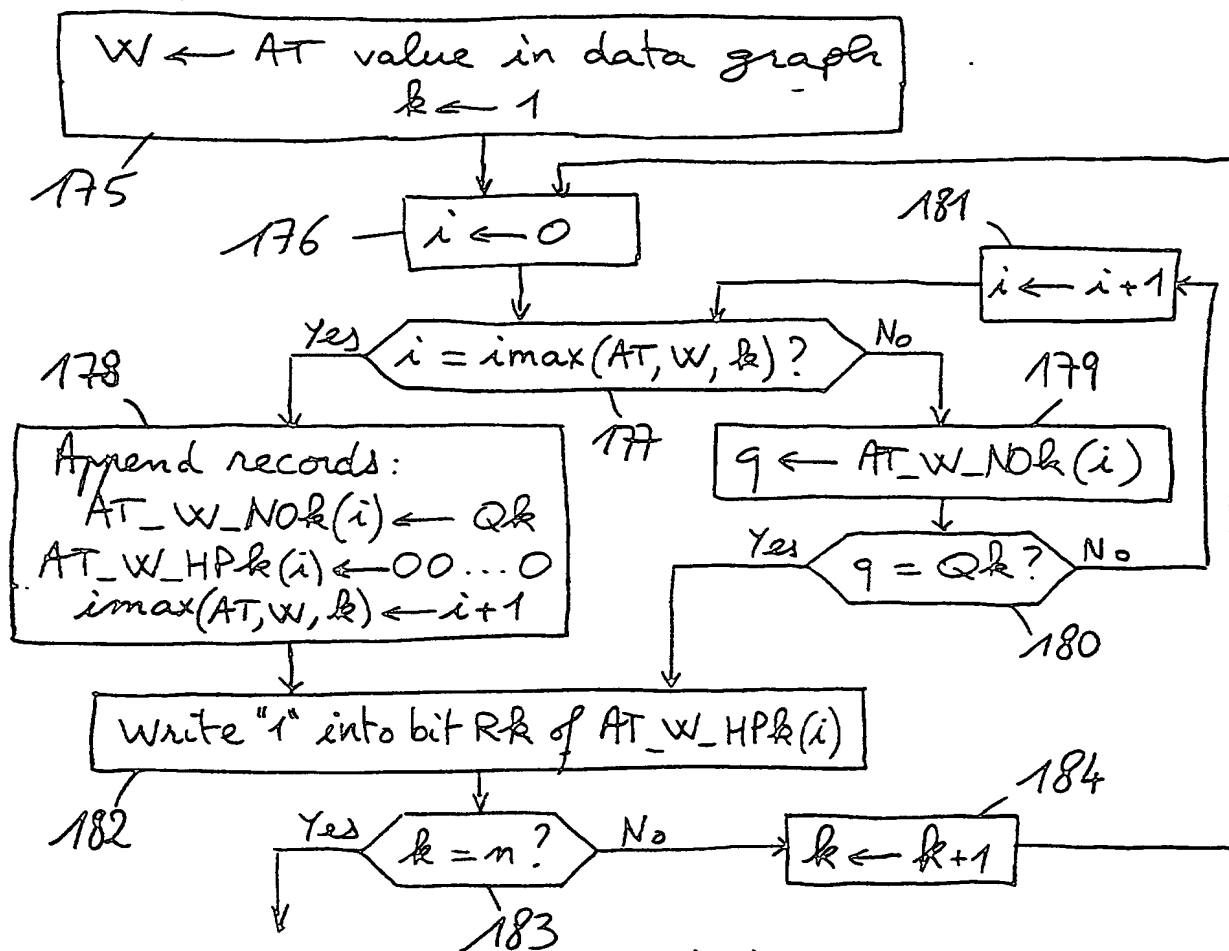 W ← AT value in data graph
k ← 1
175
176
i ← 0
181
i ← i+1
Yes
i = imax(AT, W, k)?
No
178
177
179
Append records:
AT_W_NOk(i) ← Qk
AT_W_HPk(i) ← 00...0
imax(AT, W, k) ← i+1
q ← AT_W_NOk(i)
Yes
q = Qk?
No
180
Write "1" into bit Rk of AT_W_HPk(i)
182
184
Yes
k = n?
No
k ← k+1
183